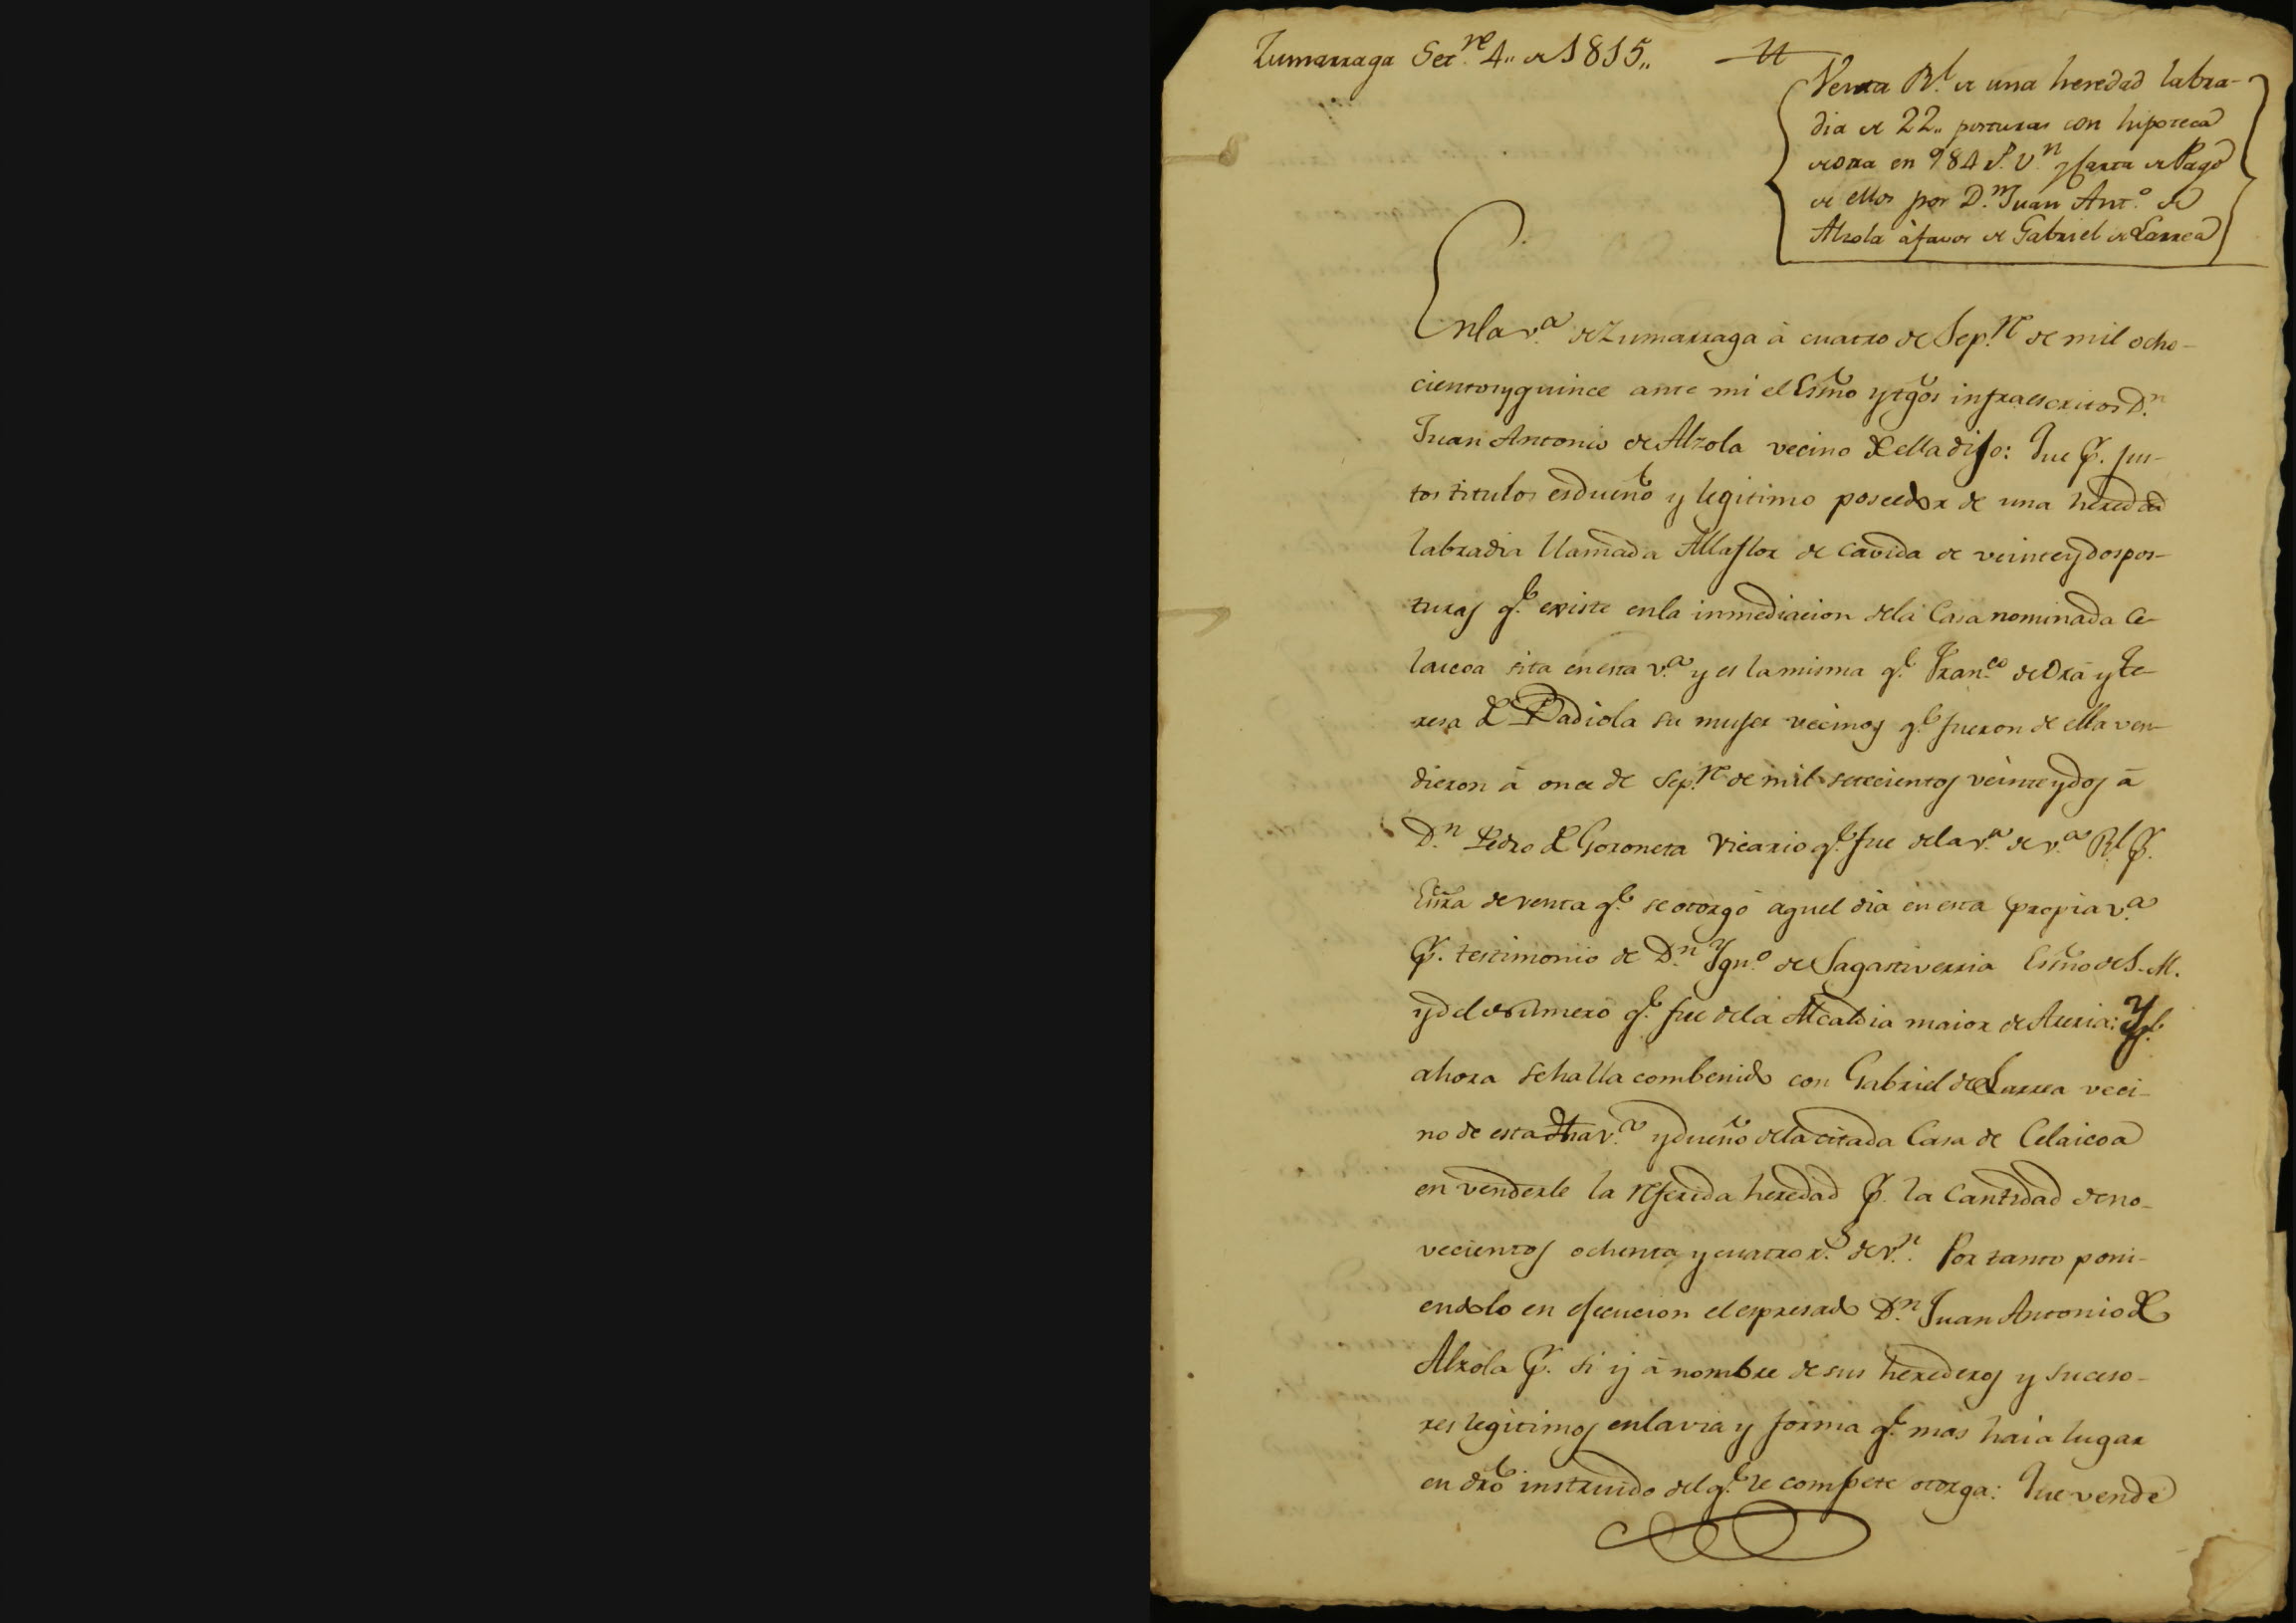 Zumarraga Set.re 4,, de 1815,,
Venta Rl. de una heredad labra-
dia de 22,, posturas con hipoteca
de otra en 984 r.s V.n y Carta de Pago
de ellos por D.n Juan Ant.o de
Alzola à favor de Gabriel de Larrea
En la v.a de Zumarraga à cuatro de Sep.re de mil ocho-
cientos y quince ante mi el Esño y tg̃os infraescritos D.n
Juan Antonio de Alzola vecino de ella dijo: Que p.r jus-
tos titulos es dueño y legitimo poseedor de una heredad
labradia llamada Allaflor de cavida de veinte y dos pos-
turas q.e existe en la inmediacion de la Casa nominada Ce-
laicoa sita en esta v.a y es la misma q.e Fran.co de Ora y Te-
resa de Padiola su mujer vecinos q.e fueron de ella ven-
dieron à once de Sep.re de mil setecientos veinte y dos à
D.n Pedro de Goroneta Vicario q.e fue de la v.a de v.a Rl p.r
Esc̃ra de venta q.e se otorgó aquel dia en esta propia v.a
p.r testimonio de D.n Ygn.o de Sagastiverria Esño de S. M.
y del numero q.e fue de la Alcaldia maior de Areria: Y q.e
ahora se halla combenido con Gabriel de Larrea veci-
no de esta dha v.a y dueño de la citada Casa de Celaicoa
en venderle la referida heredad p.r la Cantidad de no-
vecientos ochenta y cuatro r.s de v.n. Por tanto poni-
endolo en ejecucion el espresado D.n Juan Antonio de
Alzola p.r si y à nombre de sus herederos y suceso-
res legitimos en la via y forma q.e mas haia lugar
en dr̃o instruido del q.e le compete otorga: Que vende